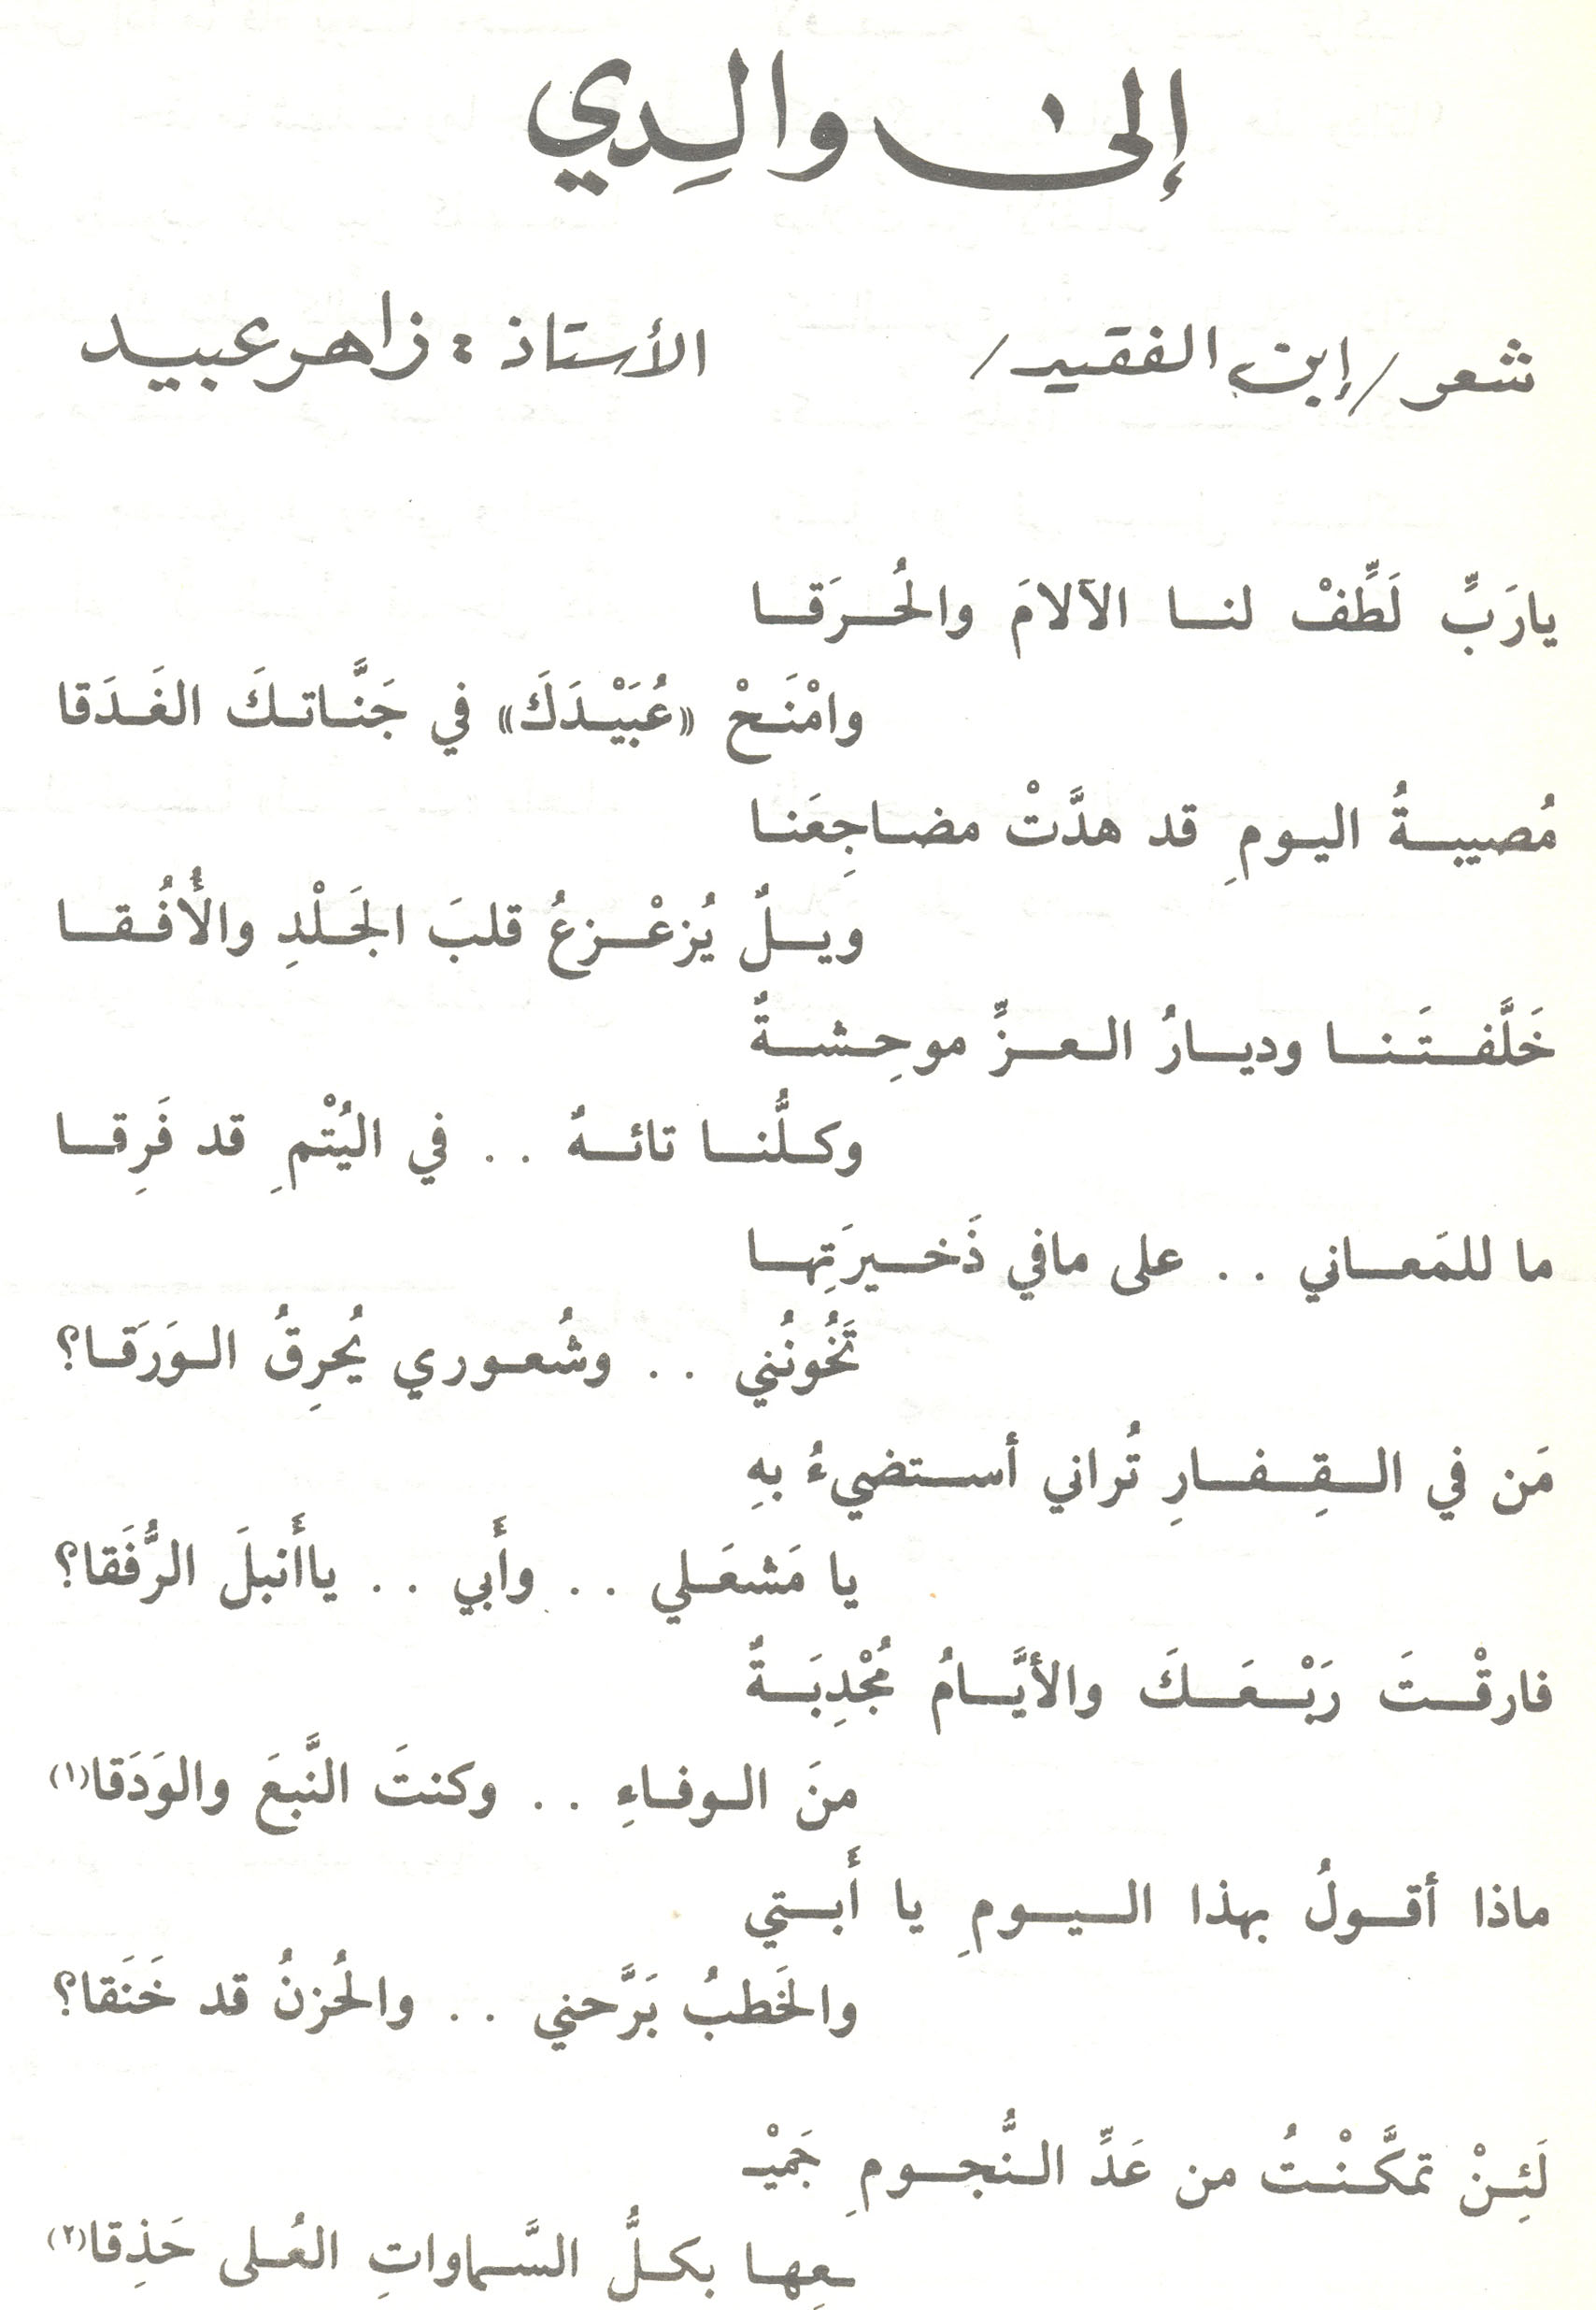 إلى والِدي
شعر / إبن الفقيد / الأستاذ : زاهر عبيد
يارَبِّ لَطِّفْ لنا الآلامَ والحُرَقا
وامْنَحْ «عُبَيْدَكَ» في جَنَّاتكَ الغَدَقا
مُصيبةُ اليومِ قد هدَّتْ مضاجِعَنا
ويلٌ يُزعْزعُ قلبَ الجَلْدِ والأُفُقا
خَلَّفتَنا وديارُ العزِّ موحِشةٌ
وكلُّنا تائهٌ . . في اليُتْمِ قد فَرِقا
ما للمَعاني . . على مافي ذَخيرَتِها
تَخُونُني . . وشُعوري يُحرِقُ الوَرَقا؟
مَن في القِفارِ تُراني أستضيءُ بهِ
يا مَشعَلي . . وأَبي . . ياأَنبلَ الرُّفَقا؟
فارقْتَ رَبْعَكَ والأيَّامُ مُجْدِبَةٌ
منَ الوفاءِ . . وكنتَ النَّبعَ والوَدَقا(١)
ماذا أقولُ بهذا اليومِ يا أَبتي
والخَطبُ بَرَّحني . . والحُزنُ قد خَنَقا؟
لَئِنْ تمكَّنْتُ من عَدِّ النُّجومِ جَميْـ
ـعِها بكلِّ السَّماواتِ العُلى حَذِقا(٢)